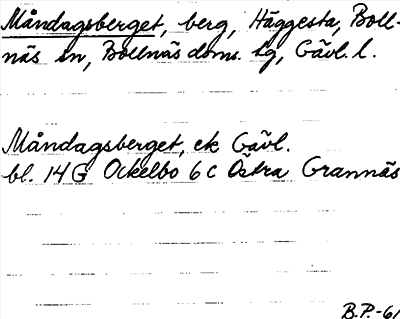 Måndagsberget, berg, Häggesta, Boll-
näs sn, Bollnäs doms. tg, Gävl. l.
Måndagsberget, ek Gävl.
bl. 14G Ockelbo 6c Östra Grannäs
B.P.-61